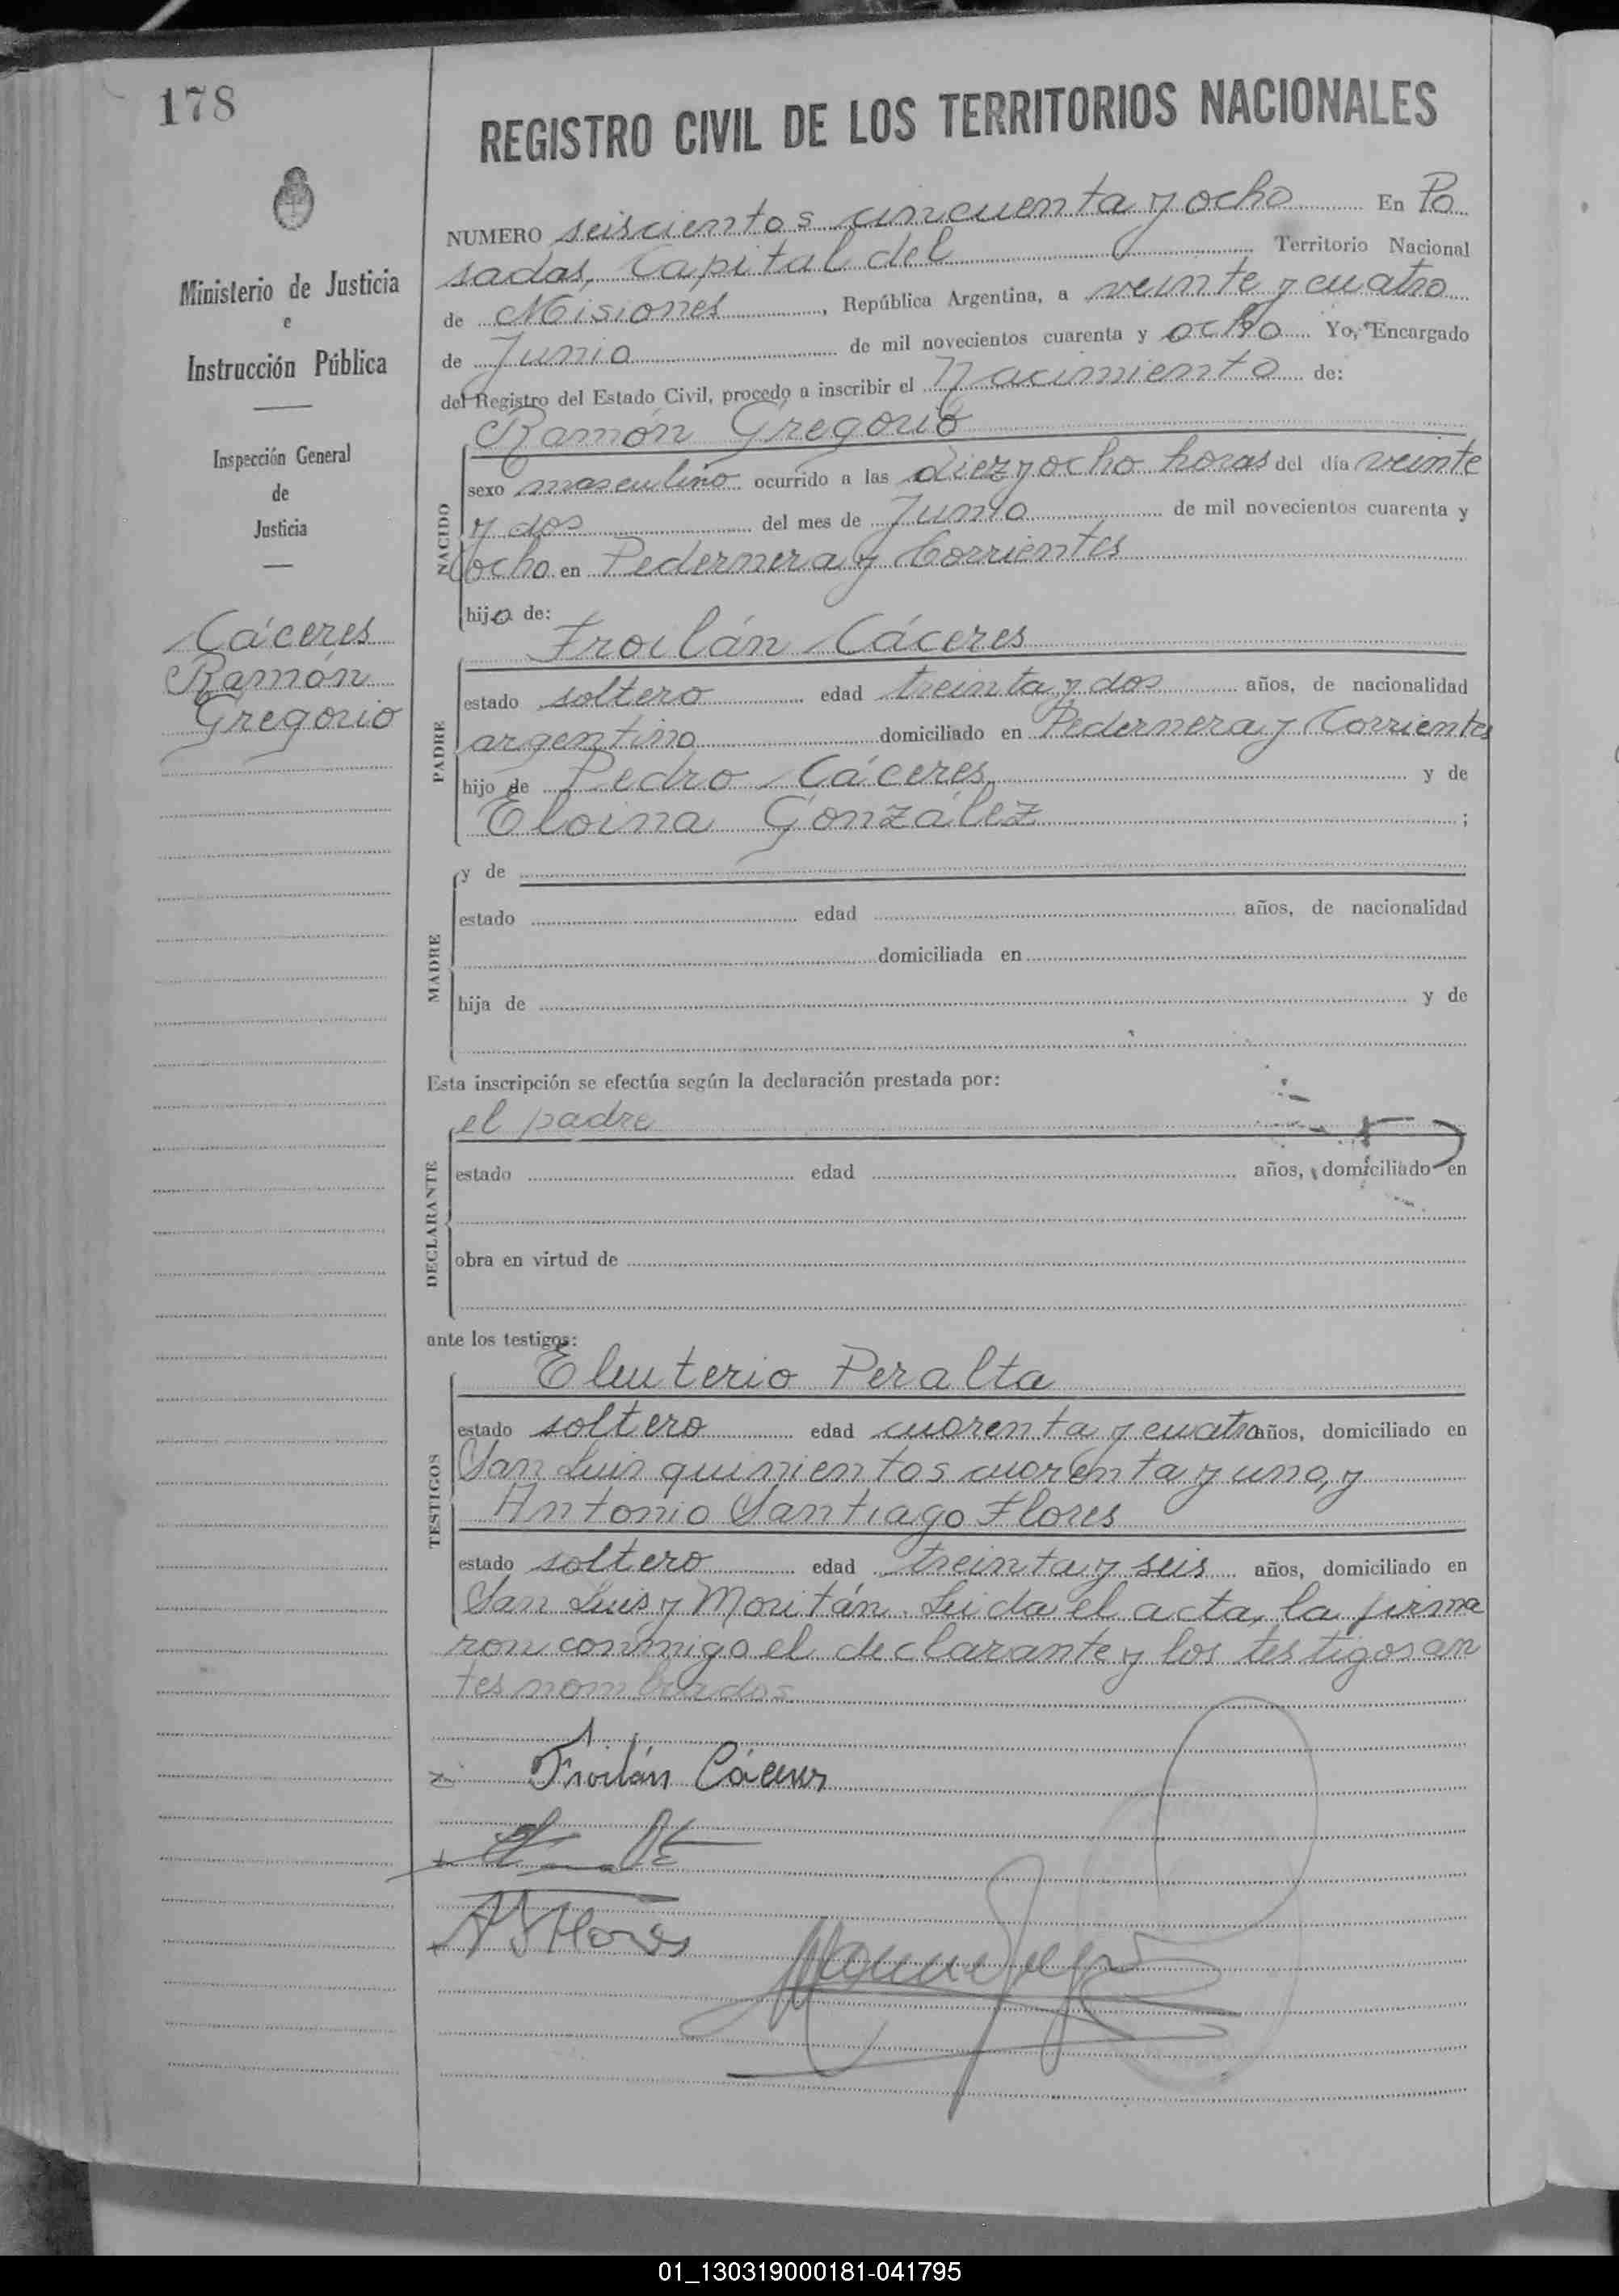 178
REGISTRO CIVIL DE LOS TERRITORIOS NACIONALES
Ministerio de Justicia
e
Instrucción Pública
Inspección General
de
Justicia
Cáceres
Ramón
Gregorio
NUMERO seiscientos cincuenta y ocho En Po
sadas, Capital del Territorio Nacional
de Misiones, República Argentina, a veinte y cuatro
de Junio de mil novecientos cuarenta y ocho Yo, Encargado
del Registro del Estado Civil, procedo a inscribir el Nacimiento de:
NACIDO
Ramón Gregorio
sexo masculino ocurrido a las diez y ocho horas del día veinte
y dos del mes de Junio de mil novecientos cuarenta y
ocho en Pedernera y Corrientes
hijo de:
PADRE
Froilán Cáceres
estado soltero edad treinta y dos años, de nacionalidad
argentino domiciliado en Pedernera y Corrientes
hijo de Pedro Cáceres y de
Eloina González ;
MADRE
y de
estado edad años, de nacionalidad
domiciliada en
hija de y de
Esta inscripción se efectúa según la declaración prestada por:
DECLARANTE
el padre
estado edad años, domiciliado en
obra en virtud de
ante los testigos:
TESTIGOS
Eleuterio Peralta
estado soltero edad cuarenta y cuatro años, domiciliado en
San Luis quinientos cuarenta y uno, y
Antonio Santiago Flores
estado soltero edad treinta y seis años, domiciliado en
San Luis y Moritán. Leida el acta, la firma
ron conmigo el declarante y los testigos an
tes nombrados
Froilán Cáceres
A S Flores
01_130319000181-041795